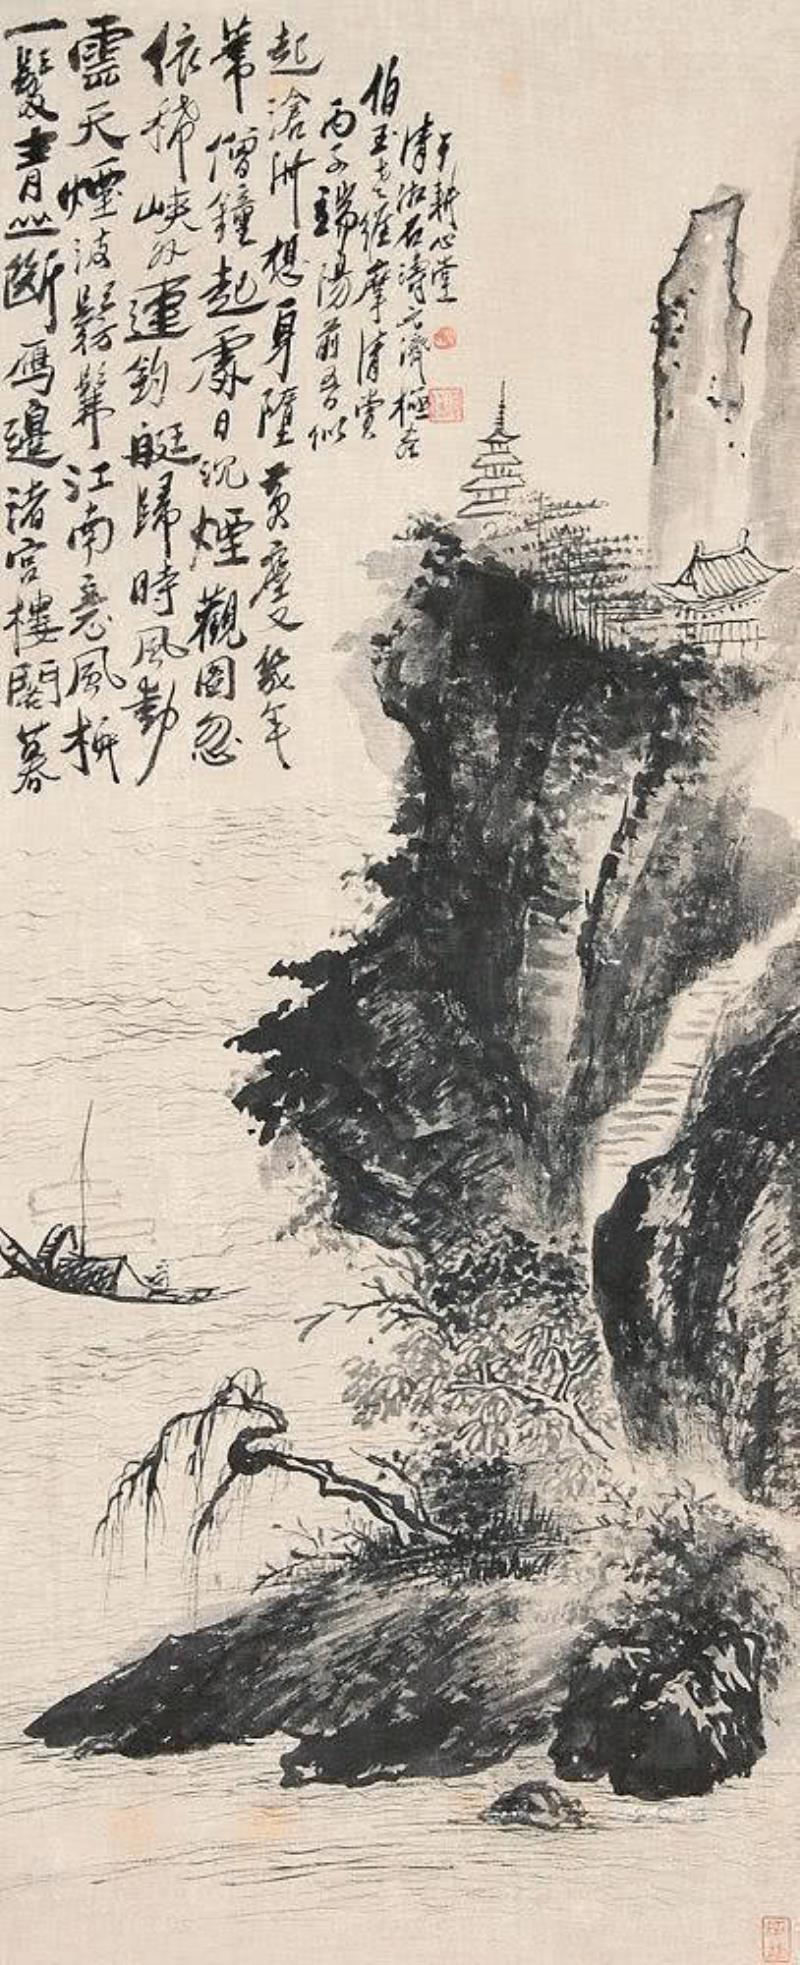 一髮青山斷鴈邊渚宮樓閣暮
雲天煙波髣髴江南意風櫂
依稀峽外運釣艇歸時風動
葦僧鐘起處日沉煙觀圖忽
起滄洲想身墮黃塵又幾年
丙子端陽前似
伯玉老維摩清賞
清湘石濤濟極在
于耕心堂